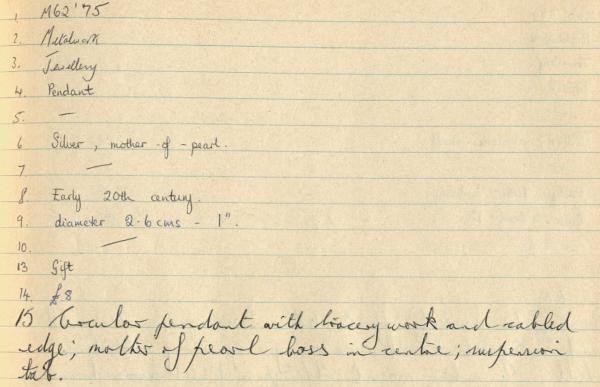 1. M62'75
2. Metalwork
3. Jewellery
4. Pendant
5. —
6 Silver, mother-of-pearl.
7 —
8 Early 20th century.
9. diameter 2.6 cms - 1".
10. —
13 Gift
14. £8
15 Circular pendant with tracery work and cabled
edge; mother of pearl boss in centre; suspension
tab.